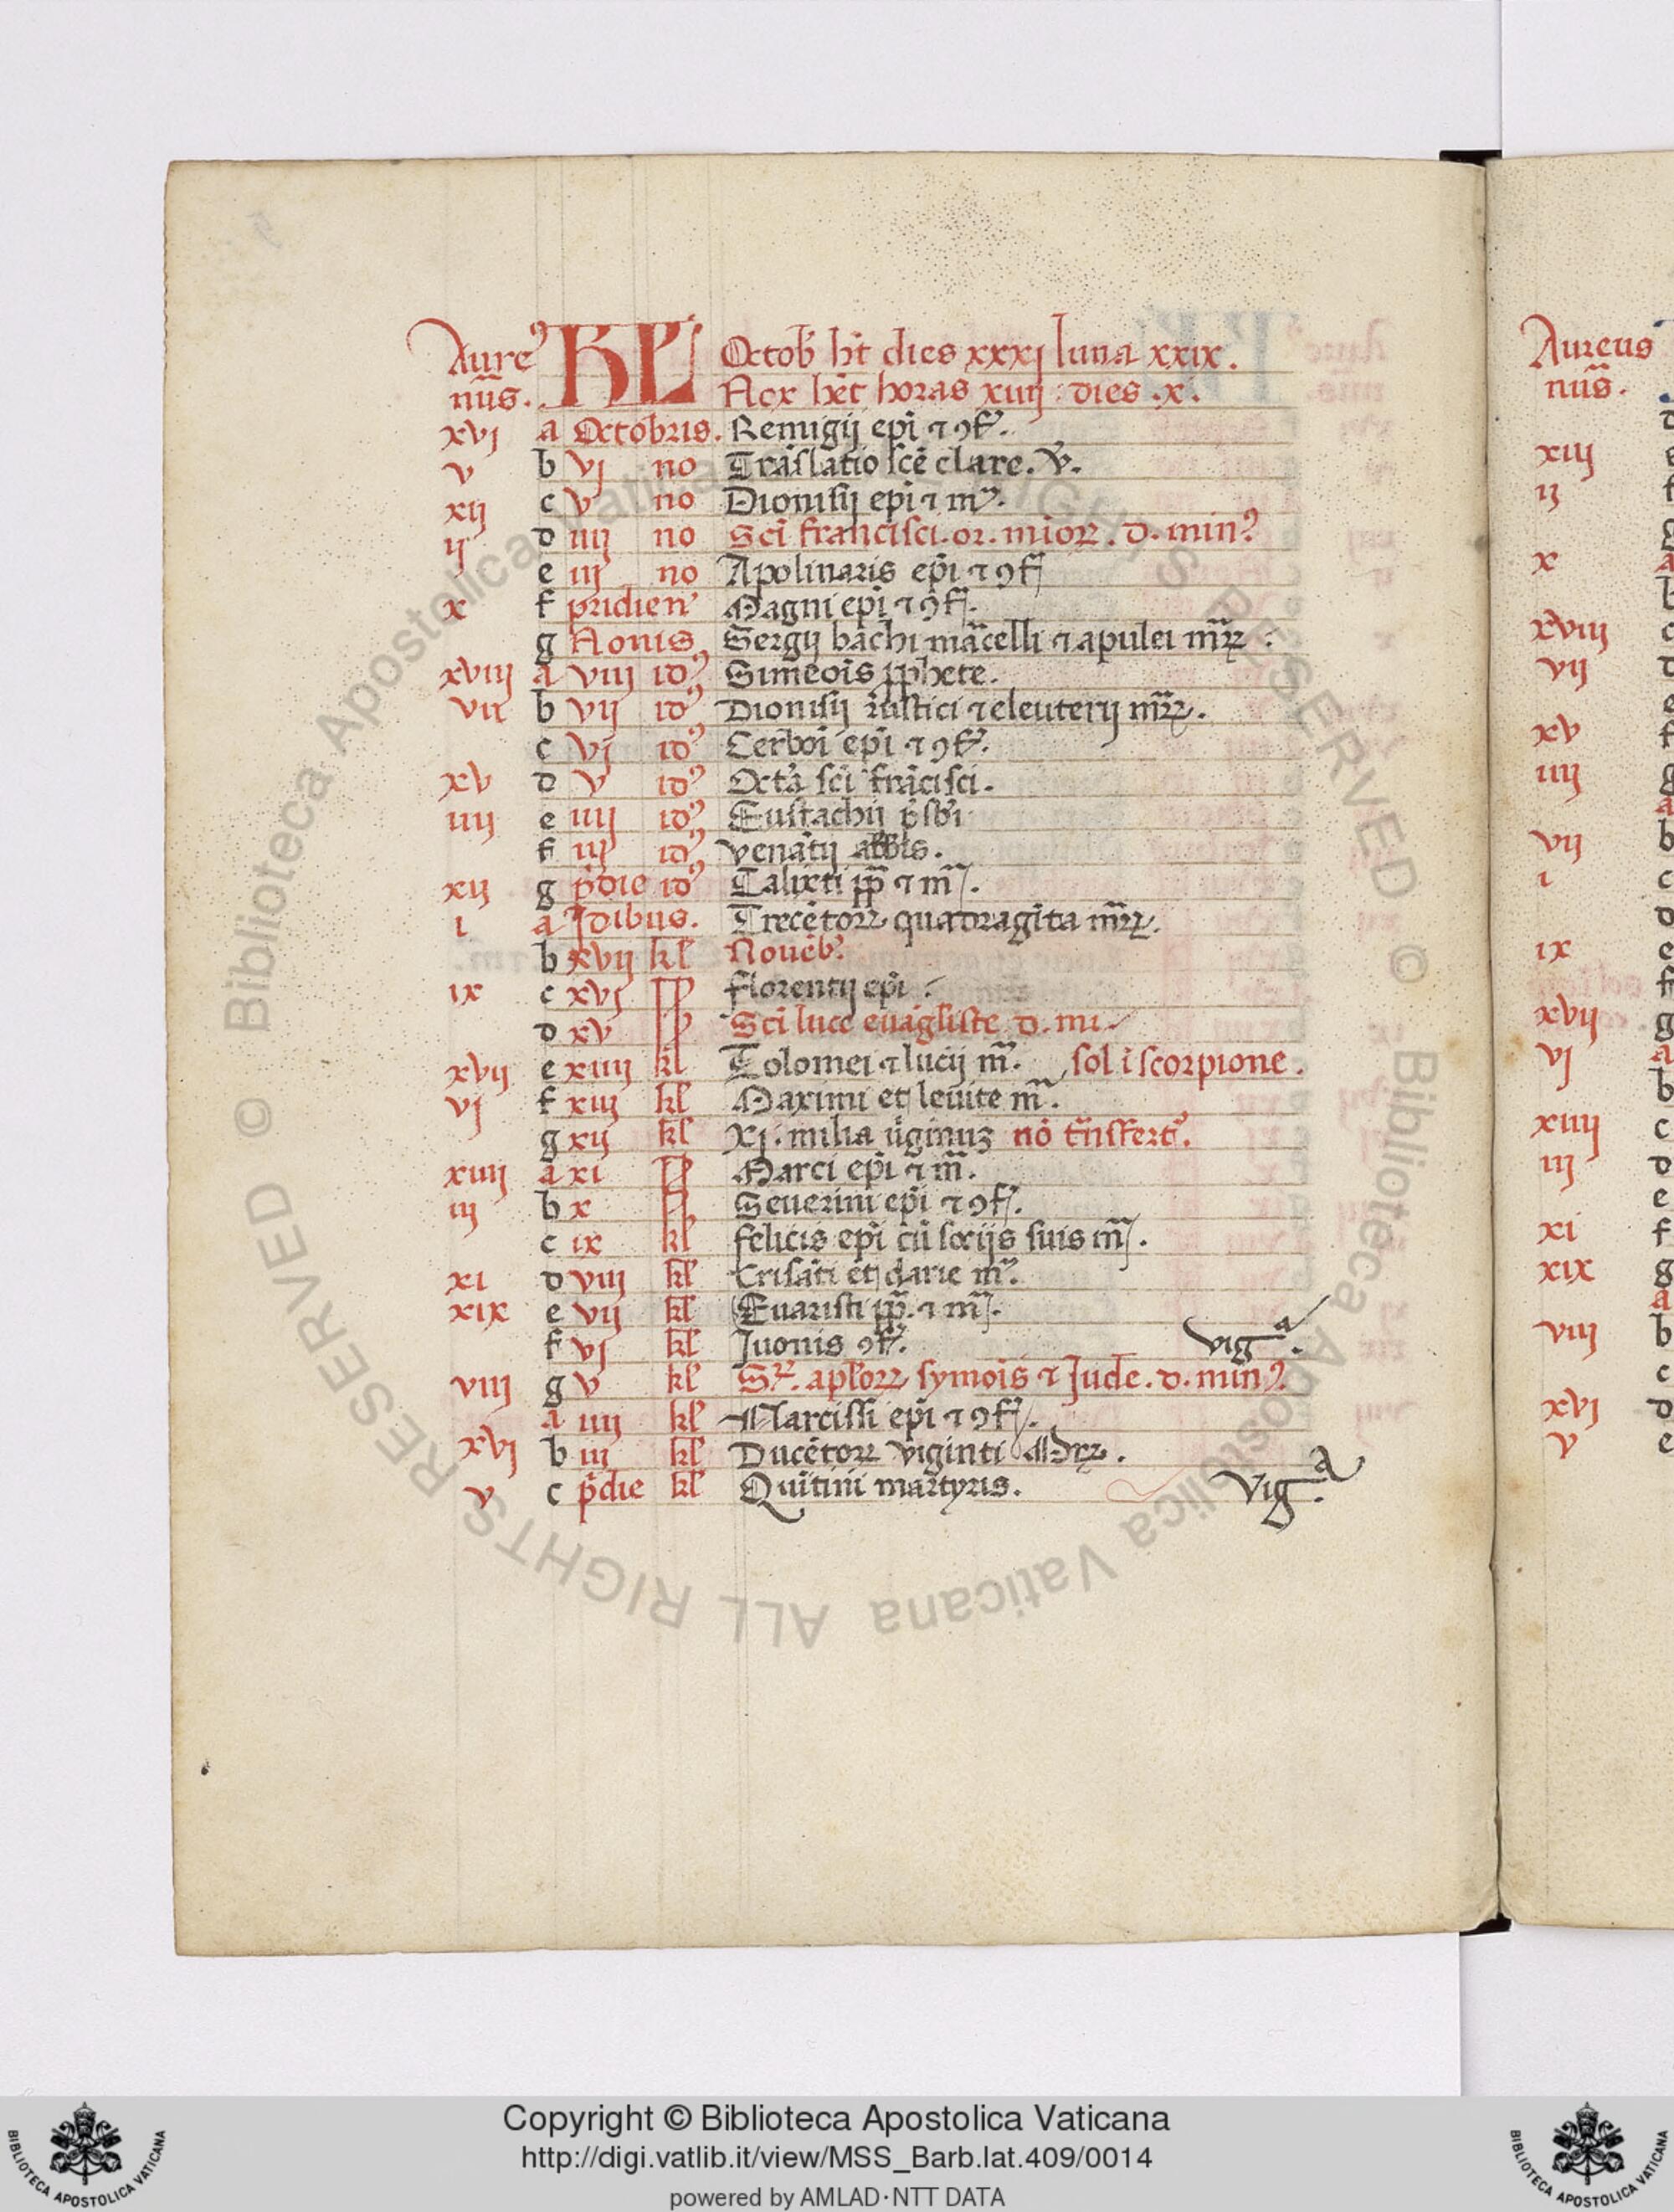 Aure⁹ KL Octob̃ ht̃ dies xxxj luna xxix.
nūs. Nox hēt horas xiiij : dies .x.
xvj a Octobris. Remigij epī ⁊ ꝯf̃.
v b vj no Trāslatio scē clare. v̄.
xij c v no Dionisij epī ⁊ m̃.
ij d iiij no Scī francisci. or. mīoꝝ. d. min⁹
e iij no Apolinaris epī ⁊ ꝯf̃
x f pridien̄ Magni epī ⁊ ꝯf̃.
g Nonis Sergij bachi mācelli ⁊ apulei m̄rꝝ .
xviij a viij id⁹ Simeoīs ꝓphete.
vij b vij id⁹ Dionisij rustici ⁊ eleuterij m̄rꝝ.
c vj id⁹ Cerboī epī ⁊ ꝯf̃.
xv d v id⁹ Octā scī frācisci.
iiij e iiij id⁹ Eustachij p̄sbi
f iij id⁹ venātij abbīs.
xij g p̄die id⁹ Calixti pp̄ ⁊ m̄.
i a Idibus. Trecētoꝝ quadragīta m̄rꝝ.
b xvij kl Nouēb̃.
ix c xvj florentij epī .
d xv Scī luce euāgliste d. mi.
xvij e xiiij kl Tolomei ⁊ lucij m̄. sol ī scorpione.
vj f xiij kl Maximi et leuite m̄.
g xij kl xj. milia ūginuȝ nō t̄nsfert̃.
xiiij a xi Marci epī ⁊ m̄.
iij b x Seuerini epī ⁊ ꝯf̃.
c ix kl felicis epī cū socijs suis m̄.
xi d viij kl Crisāti et darie m̄.
xix e vij kl Euaristi pp̄. ⁊ m̄.
f vj kl Juonis ꝯf̃. vigᵃ.
viij g v kl S̄. apl̄oꝝ symoīs ⁊ Jude. d. min⁹.
a iiij kl Narcissi epī ⁊ ꝯf̃.
xvj b iij kl Ducētoꝝ viginti Mrꝝ.
v c p̄die kl Quītini martyris. Vigᵃ.
Aureus
nūs.
xiij
ij
x
xviij
vij
xv
iiij
vij
i
ix
xvij
vj
xiiij
iij
xi
xix
viij
xvj
v
Copyright © Biblioteca Apostolica Vaticana
http://digi.vatlib.it/view/MSS_Barb.lat.409/0014
powered by AMLAD·NTT DATA
© Biblioteca Apostolica Vaticana ALL RIGHTS RESERVED
BIBLIOTECA APOSTOLICA VATICANA
BIBLIOTECA APOSTOLICA VATICANA